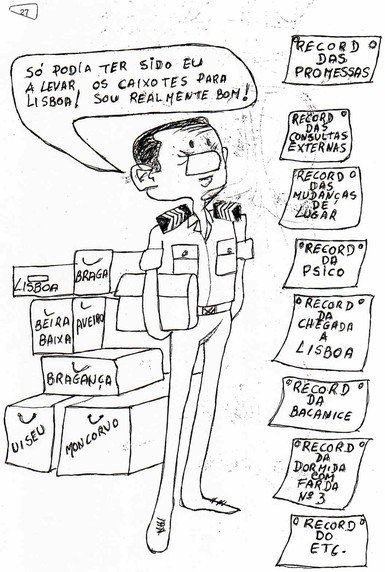 27
SÓ PODIA TER SIDO EU
A LEVAR, OS CAIXOTES PARA
LISBOA! SOU REALMENTE BOM!
RECORD
DAS
PROMESSAS
RECORD
DAS
CONSULTAS
EXTERNAS
RECORD
DAS
MUDANÇAS
DE
LUGAR
RECORD
DA
PSICO
RECORD
DA
CHEGADA
A
LISBOA
RECORD
DA
BACANICE
RECORD
DA
DORMIDA
COM
FARDA
Nº 3
RECORD
DO
ETC.
LISBOA
BRAGA
BEIRA
BAIXA
AVEIRO
BRAGANÇA
VISEU
MONCORVO